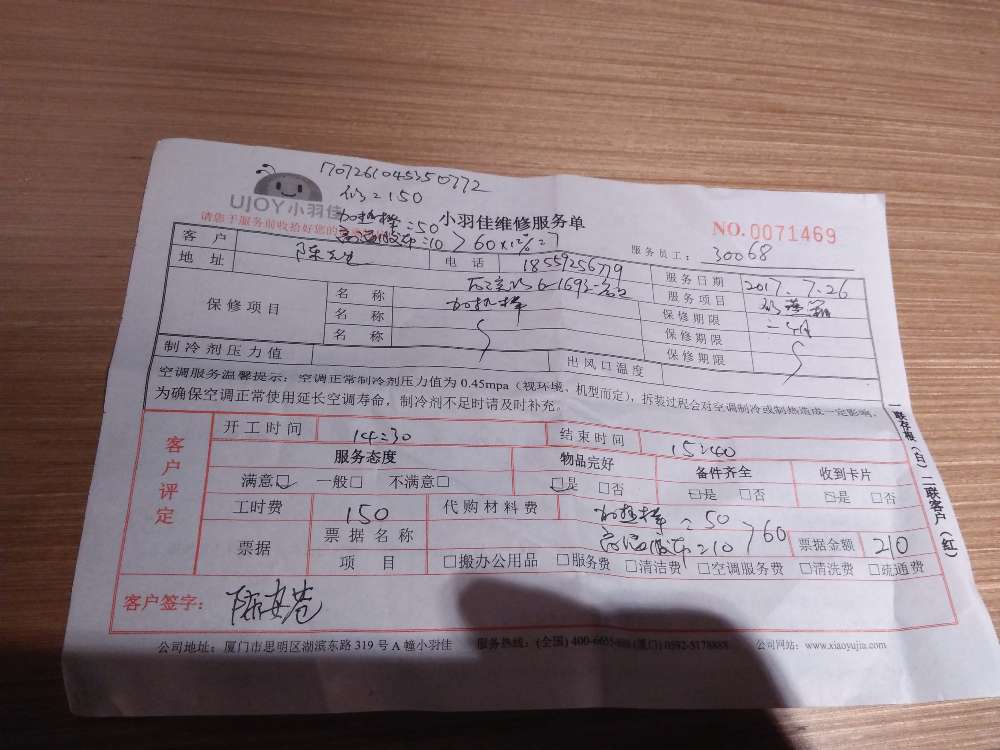 1707261045350772
修=150
UJOY小羽佳
加热棒=50
小羽佳维修服务单
NO.0071469
请您于服务前收拾好您的
=10 > 60×12%=7
服务员工：30068
客 户 陈先生 电 话 18559256779 服务日期 2017.7.26
地 址 服务项目
保修项目 名 称 加热棒 保修期限
名 称 保修期限
名 称 保修期限
制冷剂压力值 出风口温度
空调服务温馨提示：空调正常制冷剂压力值为0.45mpa（视环境、机型而定），拆装过程会对空调制冷或制热造成一定影响。
为确保空调正常使用延长空调寿命，制冷剂不足时请及时补充。
一联存根（白）二联客户（红）
客户评定
开工时间 14:30 结束时间 15:40
服务态度 物品完好 备件齐全 收到卡片
满意□ 一般□ 不满意□ □是 □否 □是 □否 □是 □否
工时费 150 代购材料费 加热棒=50
=10 > 60
票据 票据名称 票据金额 210
项 目 □搬办公用品 □服务费 □清洁费 □空调服务费 □清洗费 □疏通费
客户签字：
公司地址：厦门市思明区湖滨东路319号A幢小羽佳 服务热线：(全国) 400-6655-888 (厦门) 0592-5178888 公司网站：www.xiaoyujia.com